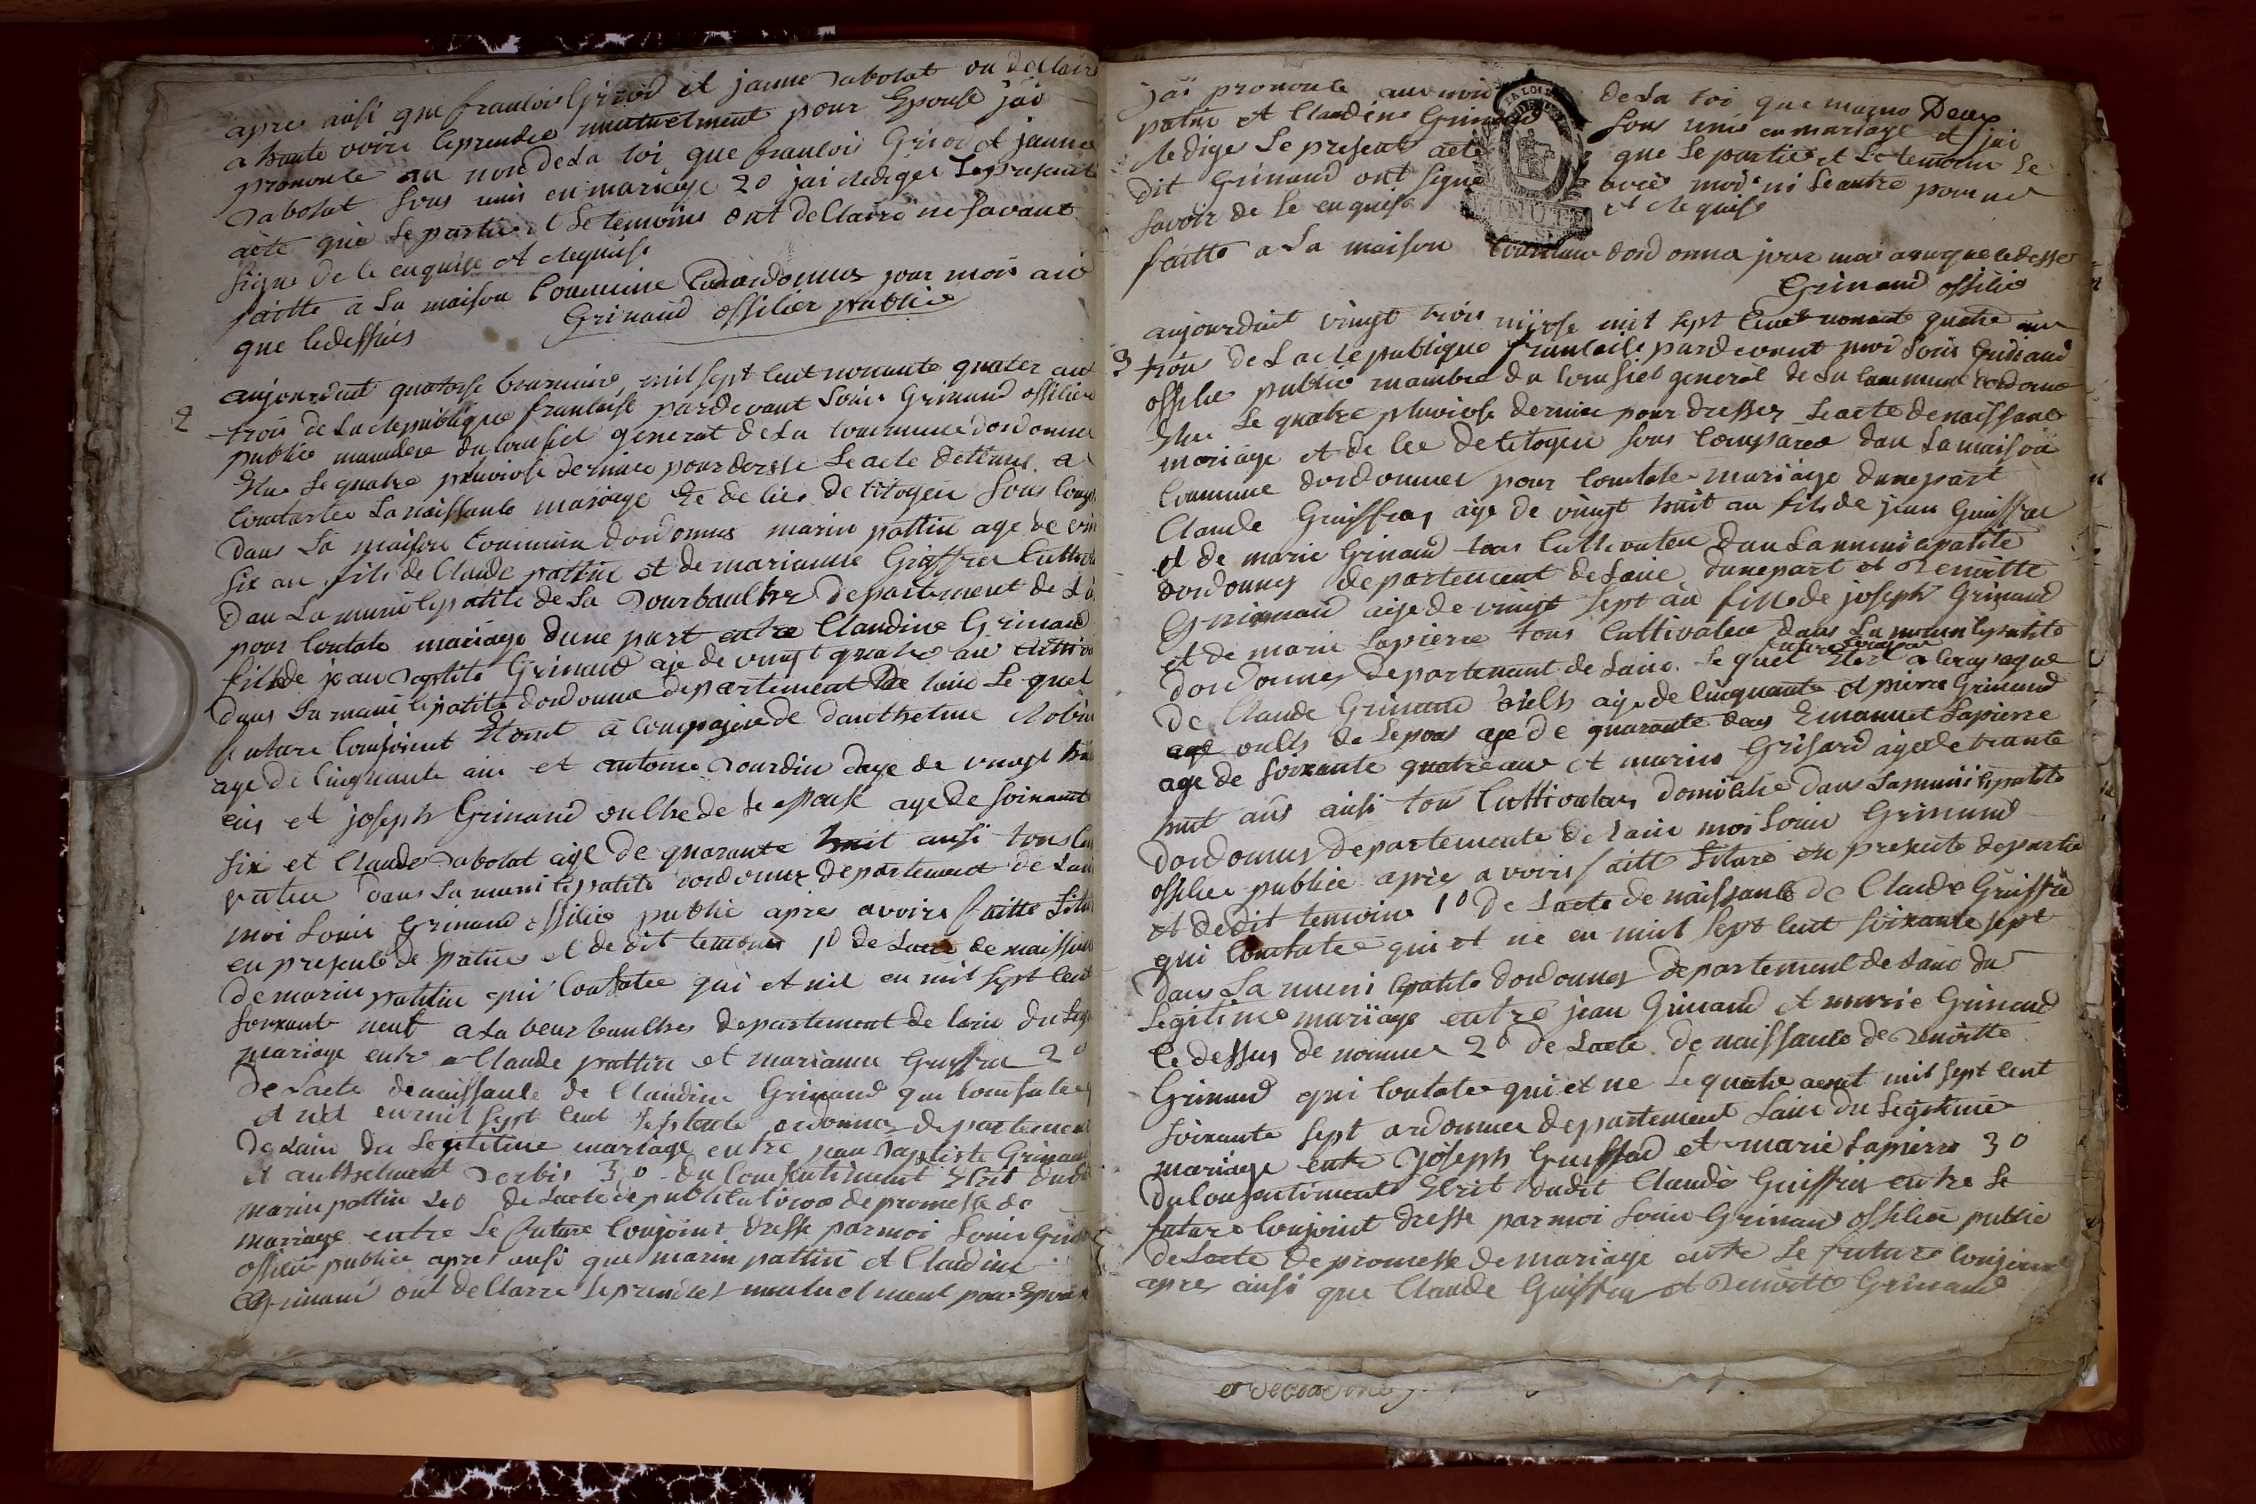 apres ainsi que francois Girod et janne Vabolat on declaire
a haute voire se prendre mutuelment pour Epouse jai
prononte au nom de La loi que francois Griod et janne
Vabolat sons unis en mariage 20 jai redigee Le present
acte que Le partie et Le temoins ont declaire ne savant
signe de le enquise et requise
faitte a La maison Commune dordonnas jour mois ans
que ledessus Grinand officier public
2
aujourduit quatorse brumaire mil sept cent nonante quater and
trois de La republique francaise pardevant Louis Grinand officier
public manbre du Consiel general de La Commune dordonnas
Elu Le quatre pluviose derniee pour dresse Le acte detinus a
Constartee La naissante mariage Et de lie de citoyen sous comp
dans La maison Commune dordonnas marin pattin age de vin
six an fils de Claude pattin et de marianne Giffrer Cultiv
dans La municipatite de La Dourbaulhes departement de L
pour Contate mariage dune part entre Claudine Grinand
fille de jean Baptite Grinand aje de vingt quatre an Cultiv
dans La municipatite dordonna departement de laine Le quel
future Conjoinct Etont a compagne de danthelme Robin
age de Cinquante ans et antonne Jourdin daje de vingt hui
ans et joseph Grinand onlhe de Le epouse age de soixante
six et Claude Vabolat age de quarante huit ausi tous Cul
vateu dans La municipatite dordonnas departement de Lain
moi Louis Grinand officie public apres avoire faitte Litu
en presente de patties et de dit temoins 10 de Lacte de naissan
de marin pattin qui Constatee qui et nee en mil sept cent
soixante neuf a La beurbaulhes departement de laine du Leg
mariage entre Claude pattin et marianne Guiffrer 20
de Lacte de naissante de Claudine Grinand qui Constatee
et nee en mil sept cent septante ordonnas departement
de Lain du Legitetime mariage entre jean Baptiste Grinand
et anthelment Verbis 30 du Consentiment Ecrit dudi
marin pattin 40 de Lacte de publication de promesse de
mariage entre Le future Conjoint dresse par moi Louis Grin
officie public apres ausi que marin pattin et Claudine
Grinand ont declarre Le prendres mutuelment pour Epouse
jai prononte au nom de La loi que marin
patin et Claudine Grinand sons unis en mariage et jai
redige Le present acte que Le partie et Le temoin Le
dit Grinand ont signe avec moi ni Leautre pour ne
savoir de Le enquise et requise
faitte a La maison Commune dordonna jour mois an que ledessus
Grinand officie
LA LOI
MINUTE
3
aujourduit vingt trois nivose mil sept cent nonante quatre an
trois de La republique francaise pardevant moi Louis Grinand
officie public mambre du Consiel general de La Commune dordonna
Elu Le quatre pluviose derniee pour dresser Le acte de naissance
mariage et de lee de citoyen sous comparee dan La maison
Commune dordonnas pour Constate mariage dune part
Claude Guiffrey aje de vingt huit an fils de jean Guiffrer
et de marie Grinand tous Cultivateu dan La municipatite
dordonnas departement de Laine dune part et Benoitte
Grinand aije de vingt sept an fille de joseph Grinand
et de marie Lapierre tous Cultivateu dans La municipatite
dordonnas departement de Laine Le quel future Conjoint Etont a compagne
de Claude Grinand age de Cinquante et pierre Grinand
age oncls de Lepous aje de quarante deus Emanuel Lapierre
age de soixante quatre ans et marin Grisard ajede trante
huit ans ainsi tous Cultivateus domicilie dans La municipatite
dordonnas departemente de Laine moi Louis Grinand
officie public apres avoire faitte Liture en presente de partie
et de dit temoins 10 de Lacte de naissante de Claude Guiffre
qui Contatee qui et ne en mil sept cent soixante sept
dans La municipatite dordonnas departement de Laine du
Legitime mariage entre jean Grinand et marie Grinand
le dessus de nommer 20 de Lacte de naissante de Benoitte
Grinand qui Contate qui et ne Le quatre aout mil sept cent
soixante sept ordonnas departement Laine du Legitime
mariage entre joseph et marie Lapierre 30
du Consentimente Ecrit dudit Claude Guiffrey entre Le
future Conjoint dresse par moi Louis Grinand officie public
de Lacte de promesse de mariage entre Le future Conjoint
apres ainsi que Claude Guiffrey et Benoitte Grinand